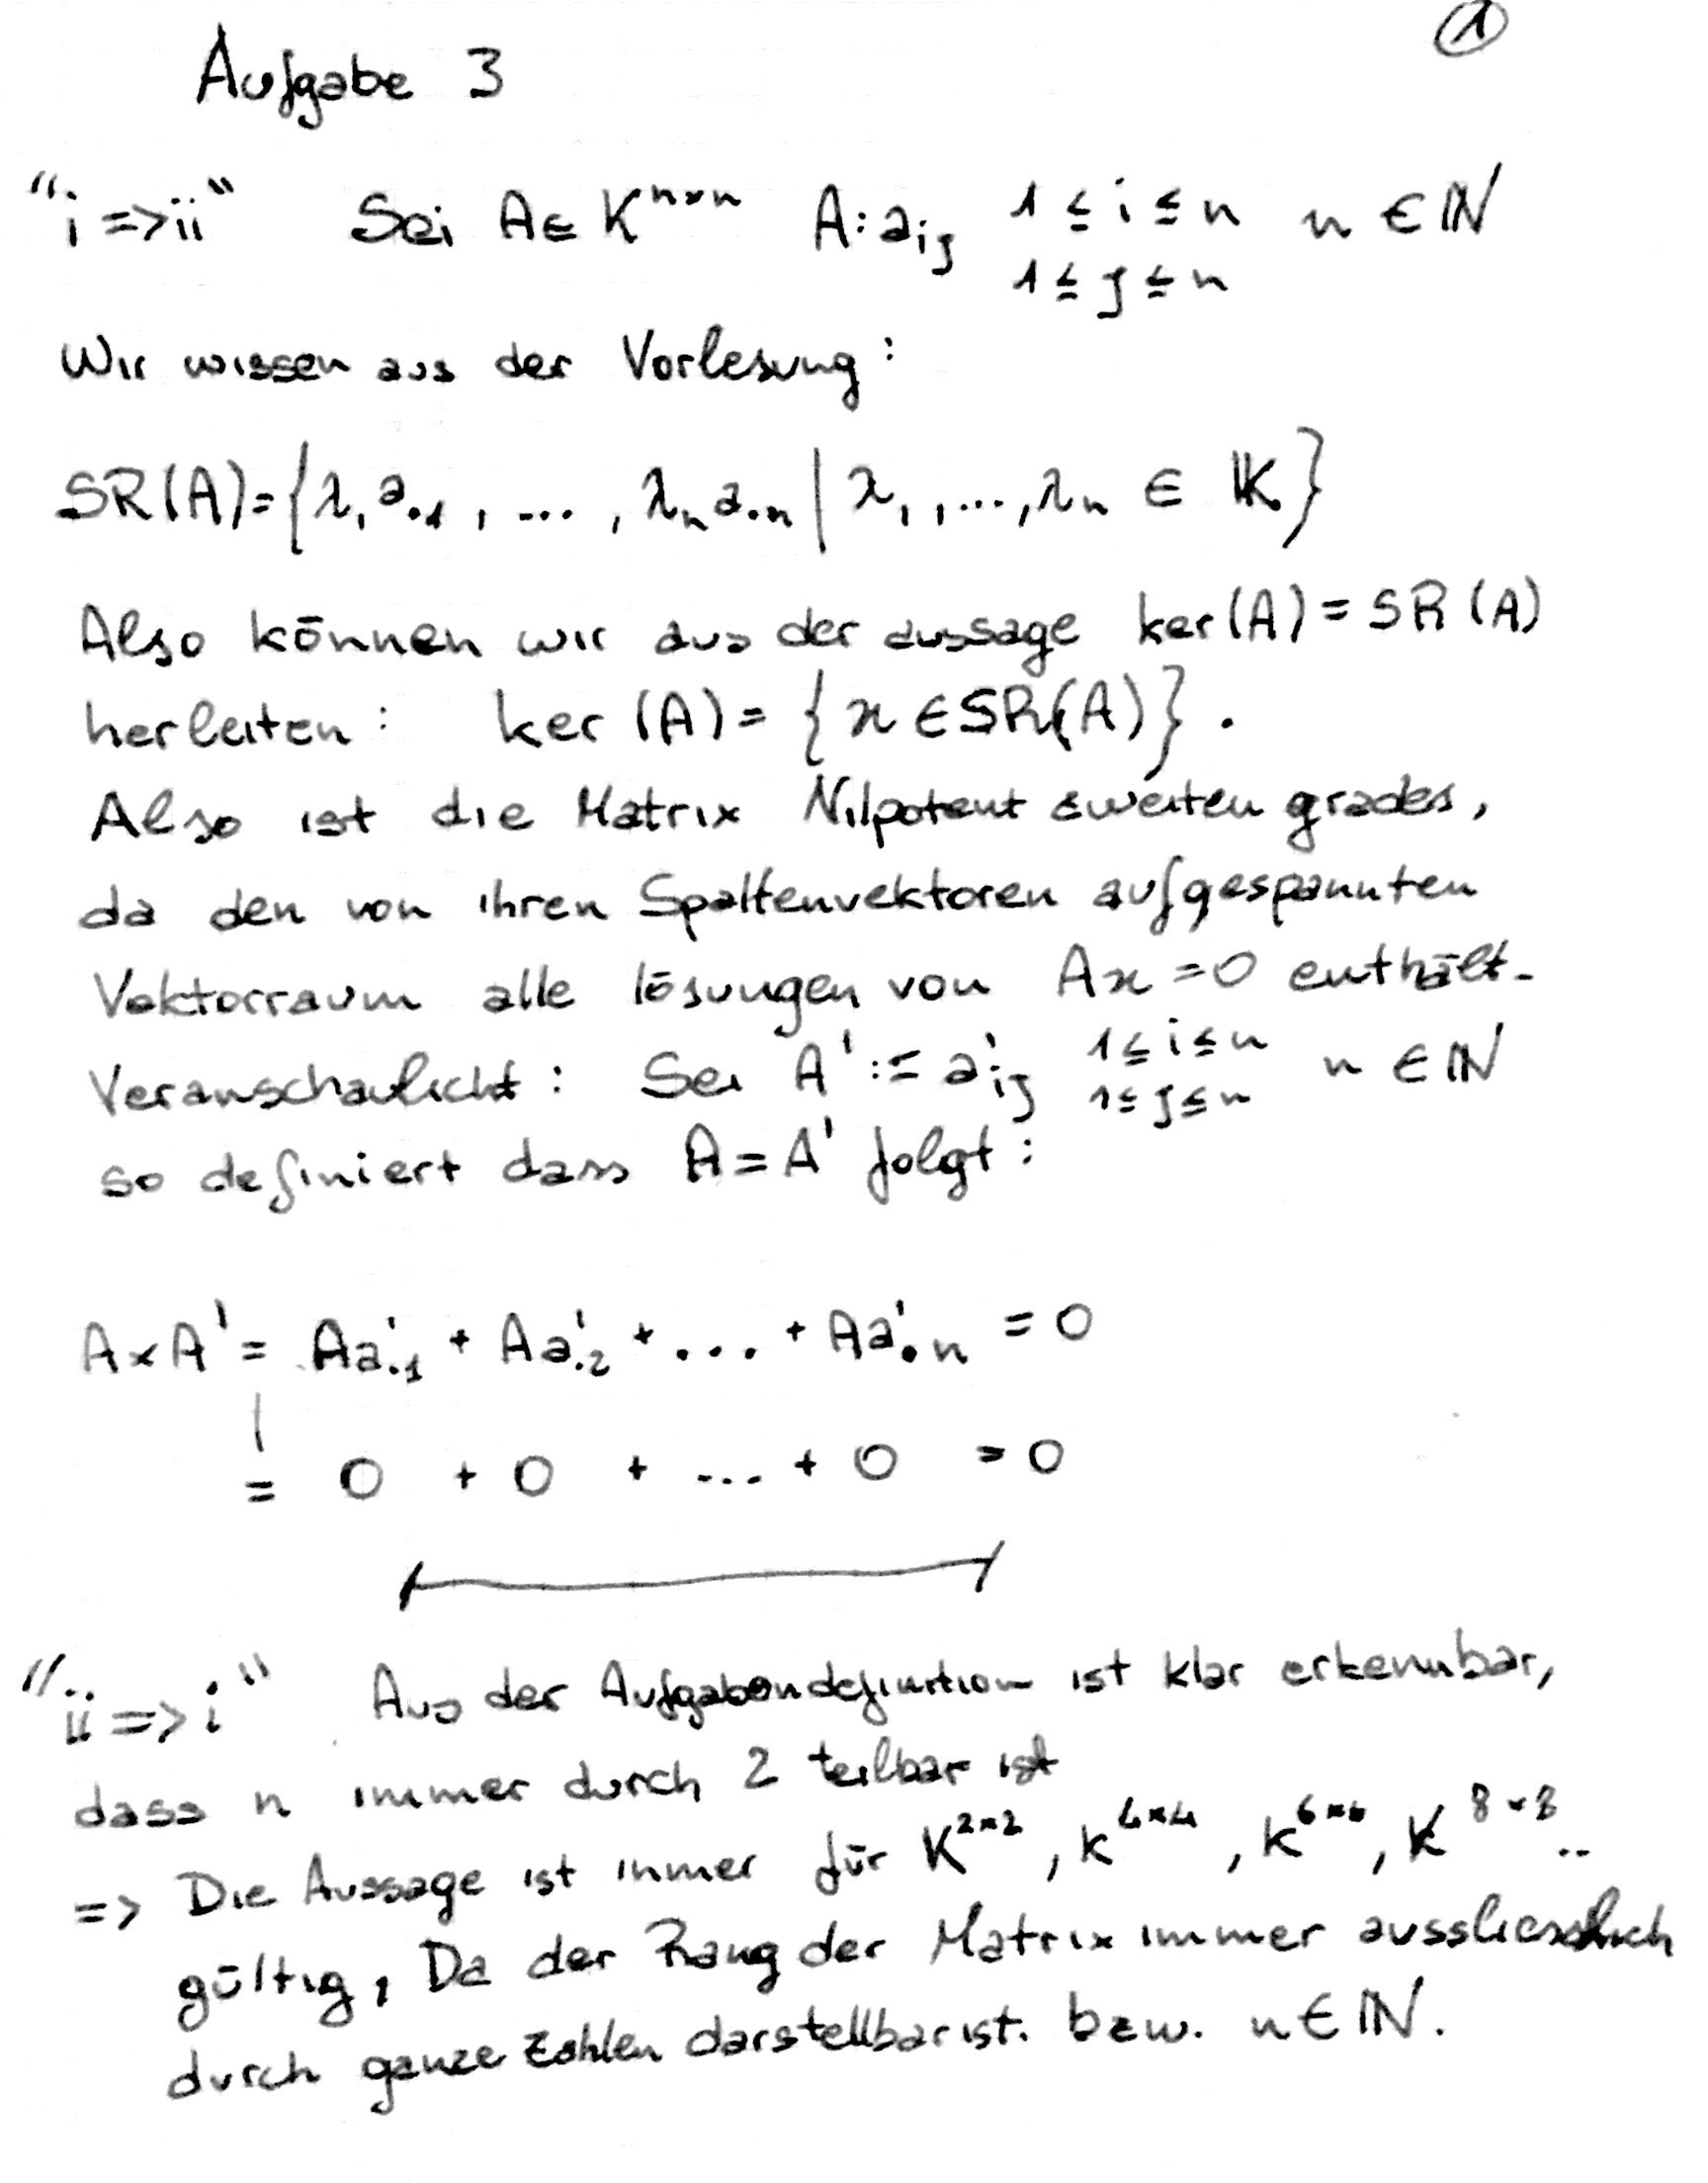 ①
Aufgabe 3
"i =>ii" Sei A∈ K^{n×n} A: a_{ij} 1 ≤ i ≤ n n ∈ ℕ
1 ≤ j ≤ n
Wir wissen aus der Vorlesung:
SR(A)={λ_1 a_{•1}, ..., λ_n a_{•n} | λ_1, ..., λ_n ∈ 𝕂}
Also können wir aus der aussage ker(A) = SR(A)
herleiten: ker (A) = {x ∈ SR(A)}.
Also ist die Matrix Nilpotent zweiten grades,
da den von ihren Spaltenvektoren aufgespannten
Vektorraum alle lösungen von Ax = 0 enthält.
Veranschaulicht: Sei A' := a'_{ij} 1 ≤ i ≤ n n ∈ ℕ
1 ≤ j ≤ n
so definiert dass A = A' folgt:
A×A' = Aa'_{•1} + Aa'_{•2} + ... + Aa'_{•n} = 0
= 0 + 0 + ... + 0 = 0
"ii => i" Aus der Aufgabendefinition ist klar erkennbar,
dass n immer durch 2 teilbar ist
=> Die Aussage ist immer für K^{2×2}, K^{4×4}, K^{6×6}, K^{8×8} ..
gültig, Da der Rang der Matrix immer aussliesslich
durch ganze Zahlen darstellbar ist. bzw. n ∈ ℕ.